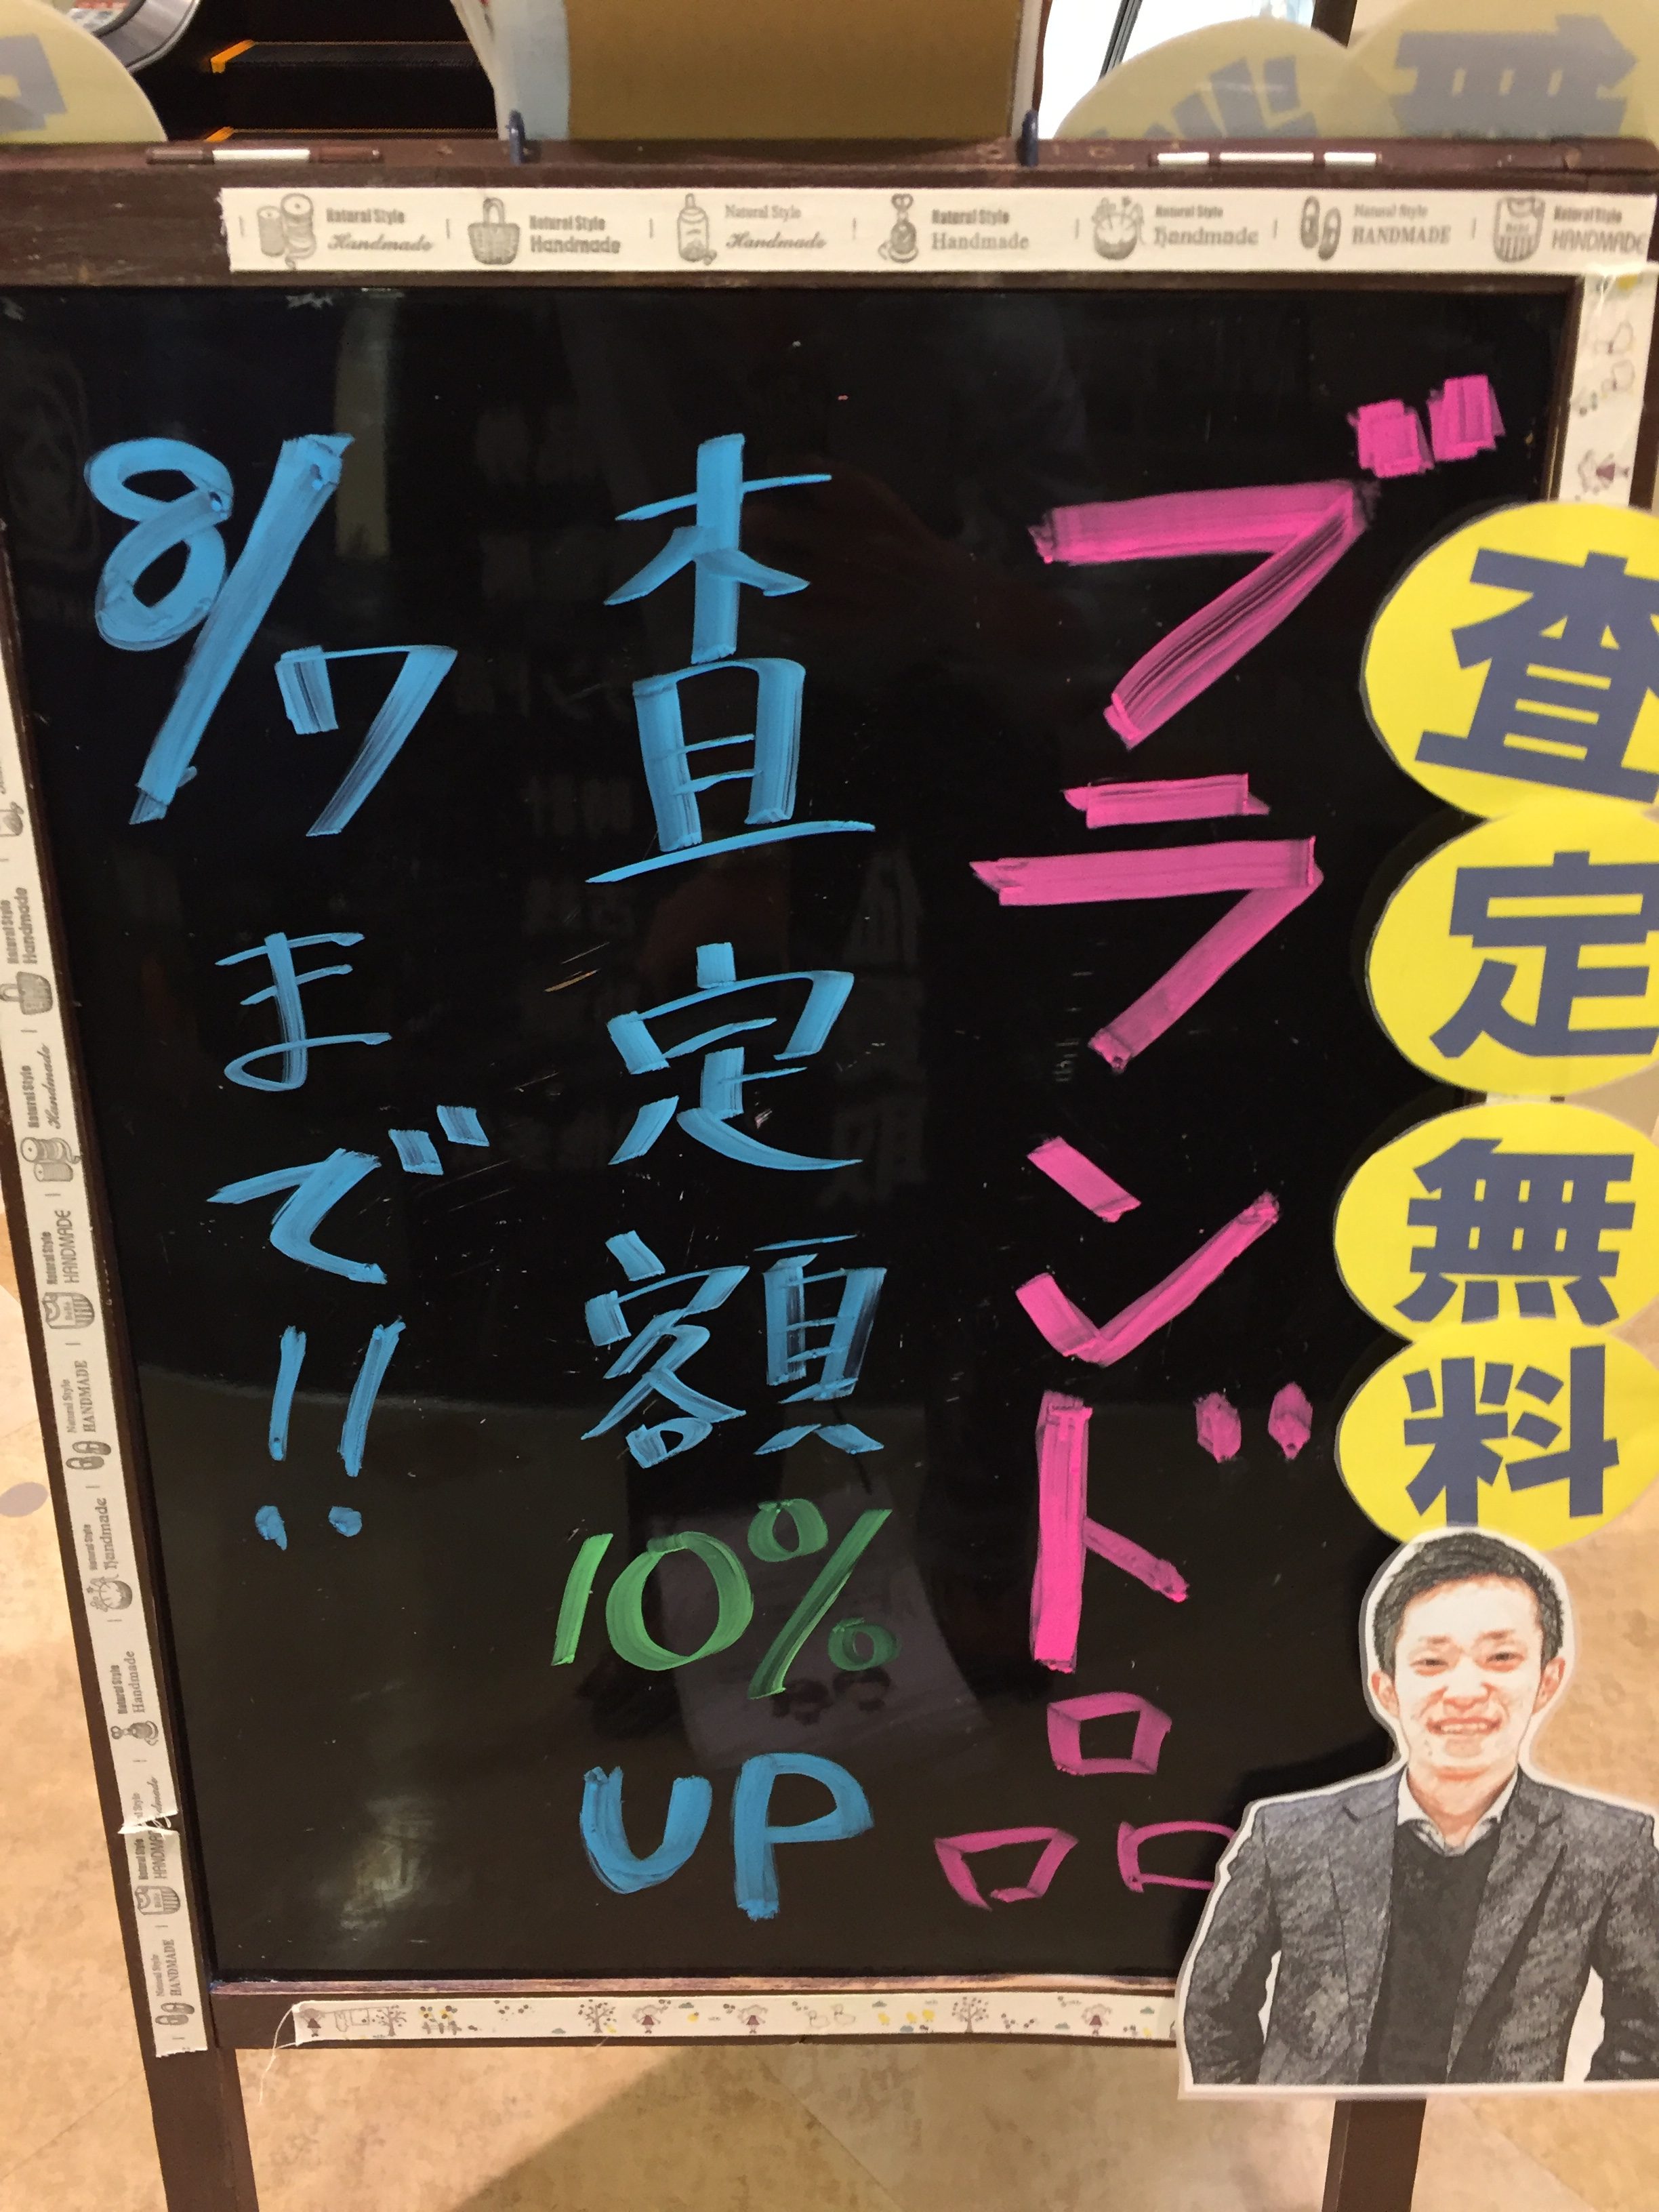 ブランド品
査定額10%UP
8/7まで!!
査定無料
Natural Style Handmade
Natural Style Handmade
Natural Style Handmade
Natural Style Handmade
Natural Style Handmade
Natural Style HANDMADE
Natural Style HANDMADE
無
Natural Style Handmade
Natural Style Handmade
Natural Style HANDMADE
Natural Style HANDMADE
Natural Style Handmade
Natural Style Handmade
HANDMADE
Natural Style HANDMADE